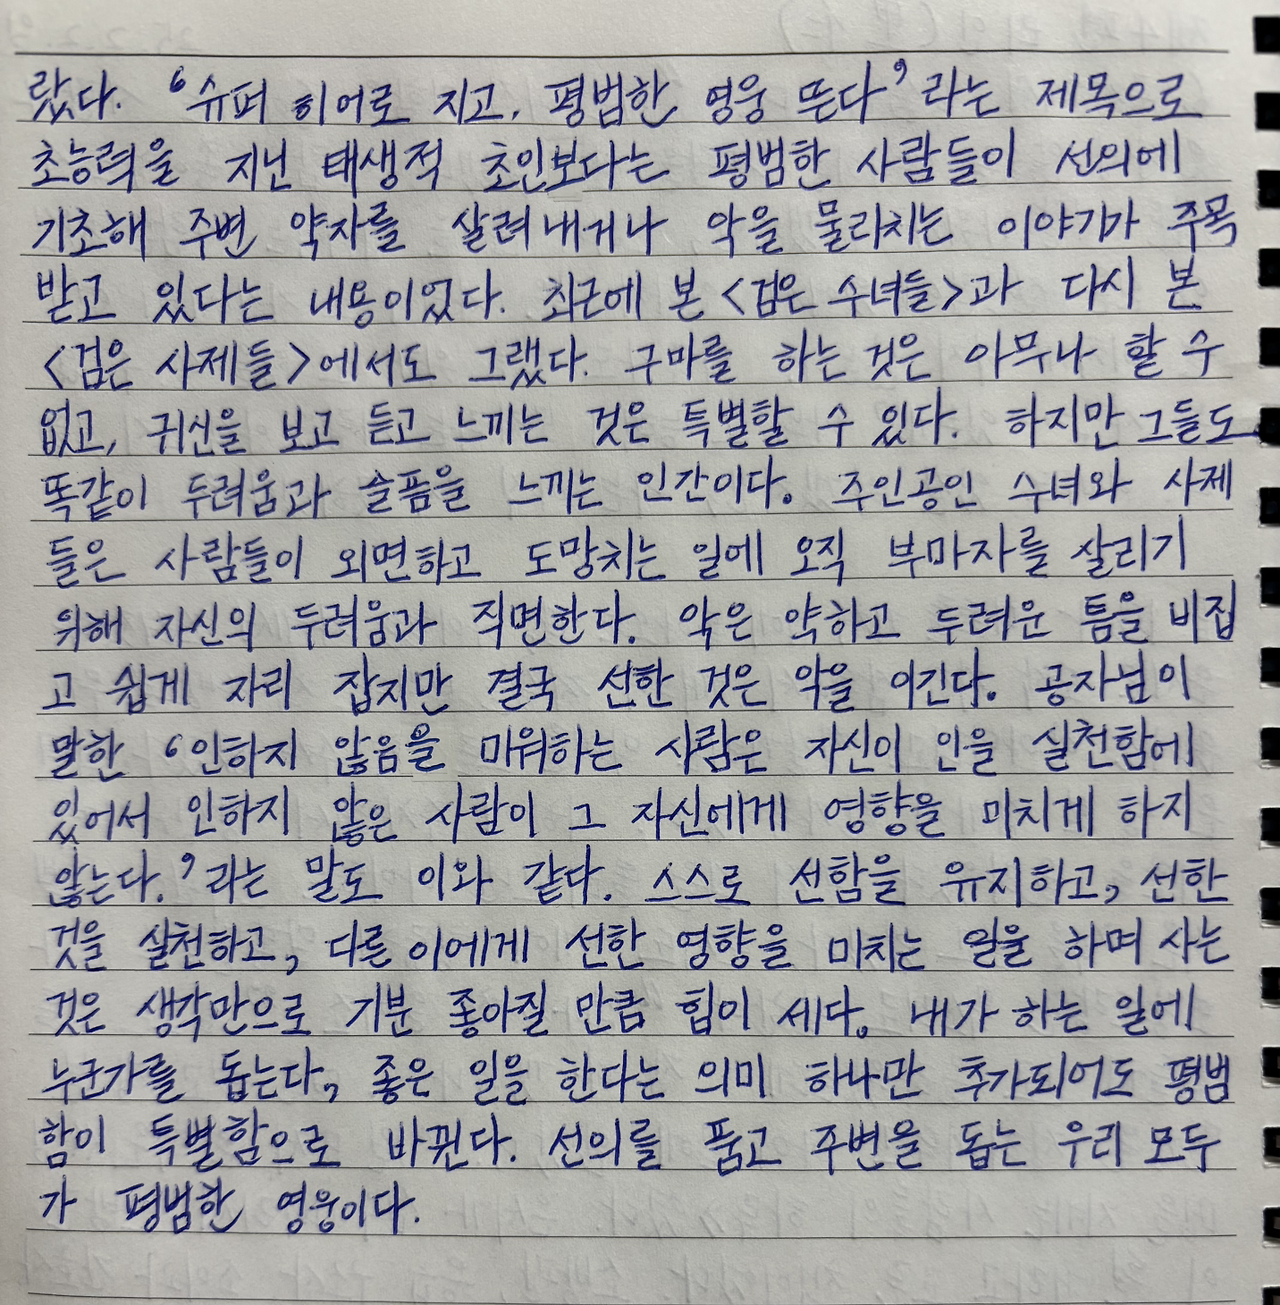 랐다. '슈퍼 히어로 지고, 평범한 영웅 뜬다'라는 제목으로
초능력을 지닌 태생적 초인보다는 평범한 사람들이 선의에
기초해 주변 약자를 살려내거나 악을 물리치는 이야기가 주목
받고 있다는 내용이었다. 최근에 본 <검은 수녀들>과 다시 본
<검은 사제들>에서도 그랬다. 구마를 하는 것은 아무나 할 수
없고, 귀신을 보고 듣고 느끼는 것은 특별할 수 있다. 하지만 그들도
똑같이 두려움과 슬픔을 느끼는 인간이다. 주인공인 수녀와 사제
들은 사람들이 외면하고 도망치는 일에 오직 부마자를 살리기
위해 자신의 두려움과 직면한다. 악은 약하고 두려운 틈을 비집
고 쉽게 자리 잡지만 결국 선한 것은 악을 이긴다. 공자님이
말한 '인하지 않음을 미워하는 사람은 자신이 인을 실천함에
있어서 인하지 않은 사람이 그 자신에게 영향을 미치게 하지
않는다.'라는 말도 이와 같다. 스스로 선함을 유지하고, 선한
것을 실천하고, 다른 이에게 선한 영향을 미치는 일을 하며 사는
것은 생각만으로 기분 좋아질 만큼 힘이 세다. 내가 하는 일에
누군가를 돕는다, 좋은 일을 한다는 의미 하나만 추가되어도 평범
함이 특별함으로 바뀐다. 선의를 품고 주변을 돕는 우리 모두
가 평범한 영웅이다.